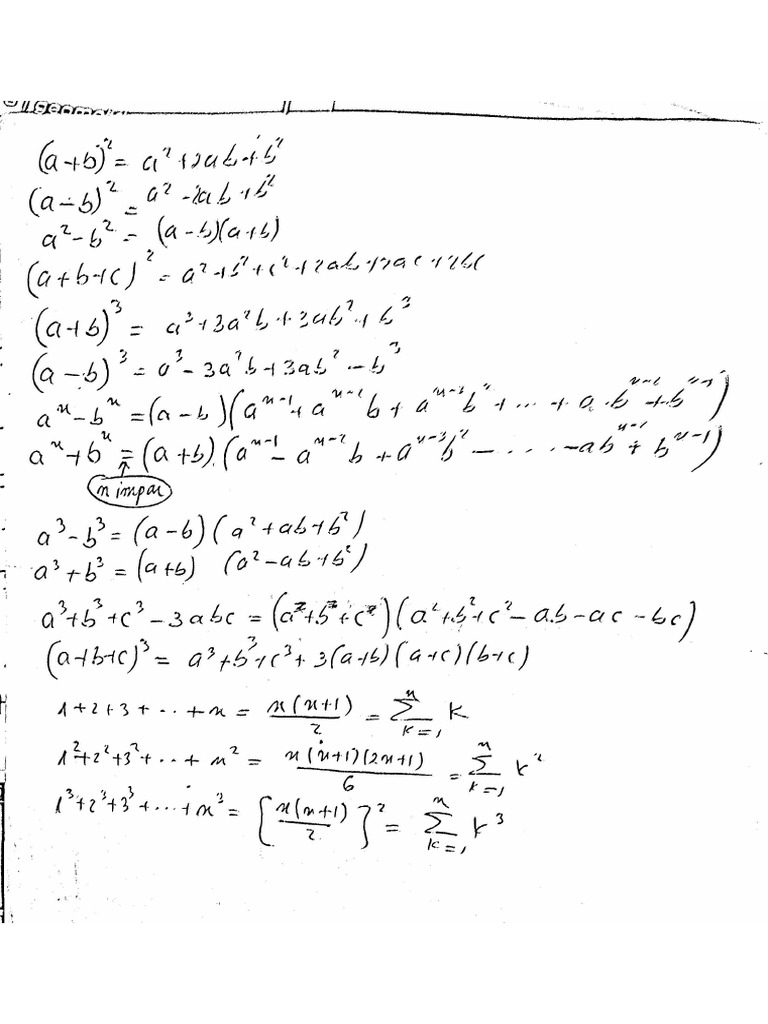 (a+b)² = a²+2ab+b²
(a-b)² = a²-2ab+b²
a²-b² = (a-b)(a+b)
(a+b+c)² = a²+b²+c²+2ab+2ac+2bc
(a+b)³ = a³+3a²b+3ab²+b³
(a-b)³ = a³-3a²b+3ab²-b³
aⁿ-bⁿ = (a-b)(aⁿ⁻¹+aⁿ⁻²b+aⁿ⁻³b²+...+a.bⁿ⁻²+bⁿ⁻¹)
aⁿ+bⁿ = (a+b).(aⁿ⁻¹-aⁿ⁻²b+aⁿ⁻³b²-....-abⁿ⁻²+bⁿ⁻¹)
n impar
a³-b³ = (a-b)(a²+ab+b²)
a³+b³ = (a+b) (a²-ab+b²)
a³+b³+c³-3abc = (a+b+c)(a²+b²+c²-ab-ac-bc)
(a+b+c)³ = a³+b³+c³+3(a+b)(a+c)(b+c)
1+2+3+...+n = n(n+1)/2 = ∑ₖ₌₁ⁿ k
1²+2²+3²+...+n² = n(n+1)(2n+1)/6 = ∑ₖ₌₁ⁿ k²
1³+2³+3³+...+n³ = [n(n+1)/2]² = ∑ₖ₌₁ⁿ k³